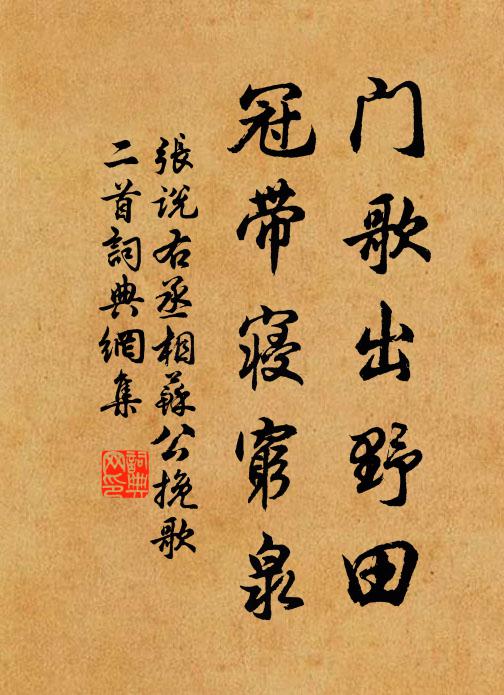 门歌出野田
冠带寝窮泉
張说右丞相蘇公挽歌
二首詞典網集
詞典网印